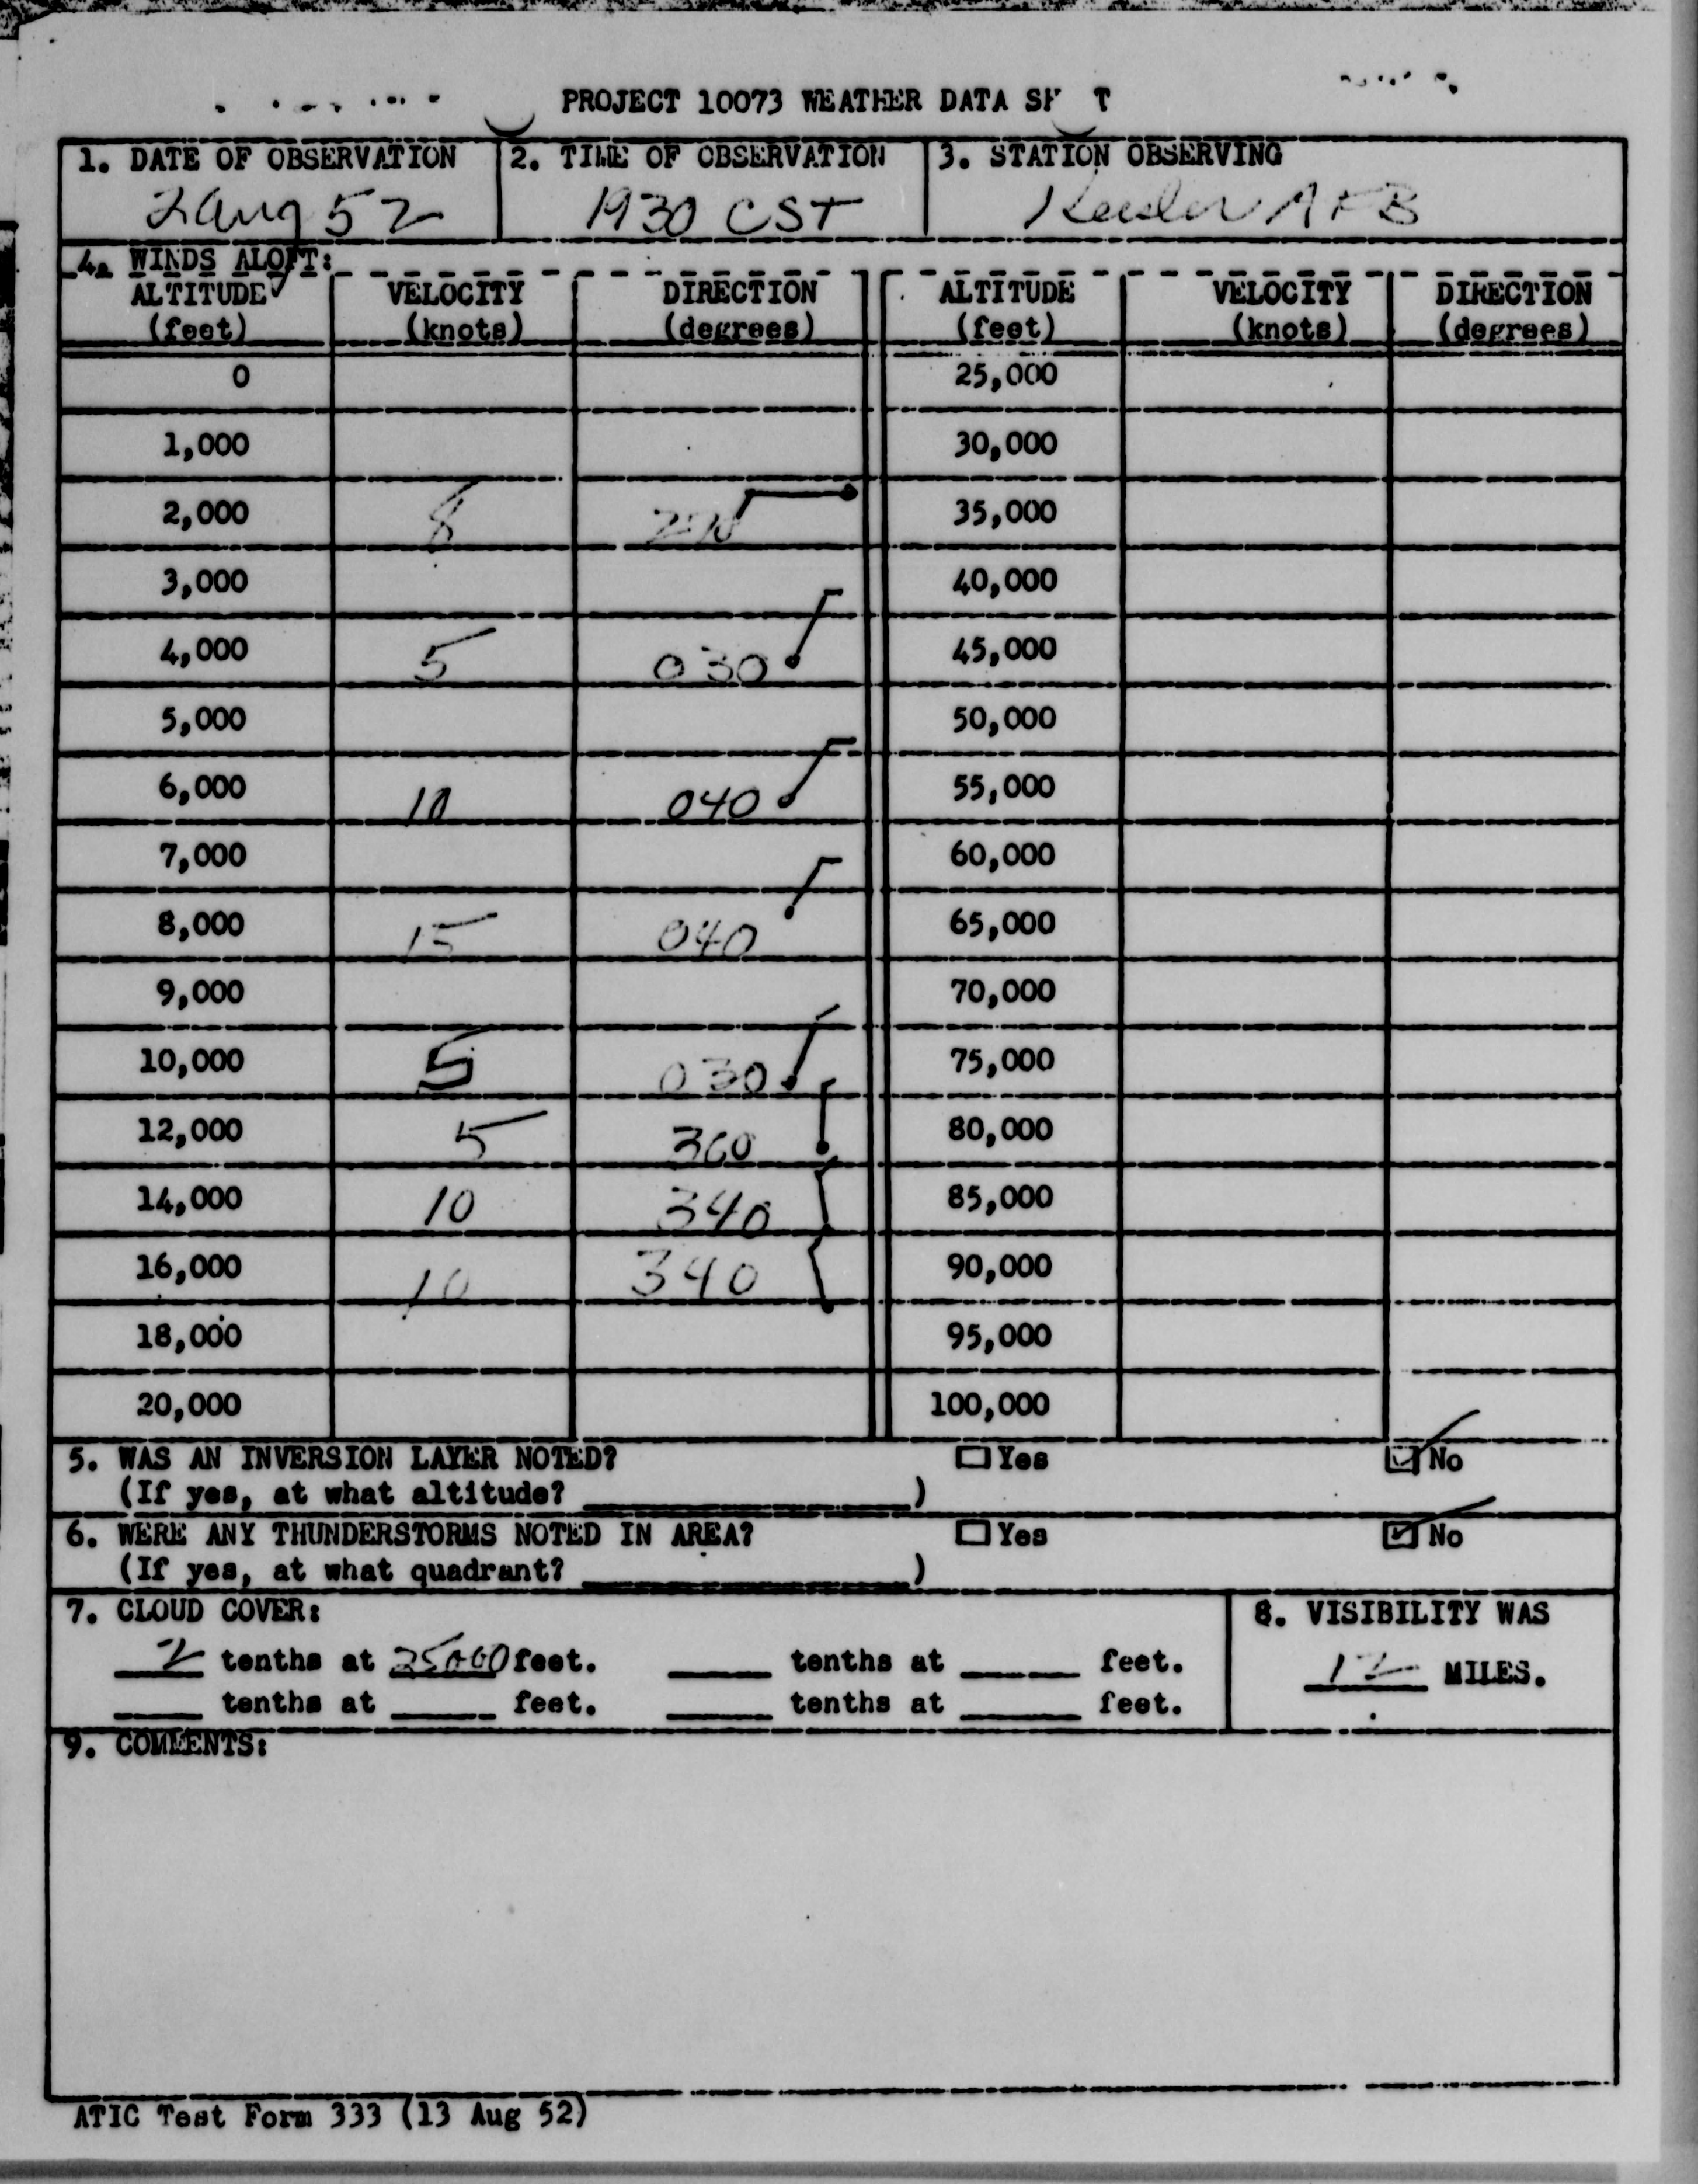 PROJECT 10073 WEATHER DATA T
1. DATE OF OBSERVATION 2. TIME OF OBSERVATION 3. STATION OBSERVING
2 Aug 52 1930 CST Keesler AFB
4. WINDS ALOFT:
ALTITUDE VELOCITY DIRECTION ALTITUDE VELOCITY DIRECTION
(feet) (knots) (degrees) (feet) (knots) (degrees)
0 25,000
1,000 30,000
2,000 8 35,000
3,000 40,000
4,000 5 030 45,000
5,000 50,000
6,000 10 040 55,000
7,000 60,000
8,000 15 040 65,000
9,000 70,000
10,000 5 030 75,000
12,000 5 360 80,000
14,000 10 340 85,000
16,000 10 340 90,000
18,000 95,000
20,000 100,000
5. WAS AN INVERSION LAYER NOTED? Yes No
(If yes, at what altitude? )
6. WERE ANY THUNDERSTORMS NOTED IN AREA? Yes No
(If yes, at what quadrant? )
7. CLOUD COVER: 8. VISIBILITY WAS
2 tenths at 25000 feet. tenths at feet. 12 MILES.
tenths at feet. tenths at feet.
9. COMMENTS:
ATIC Test Form 333 (13 Aug 52)